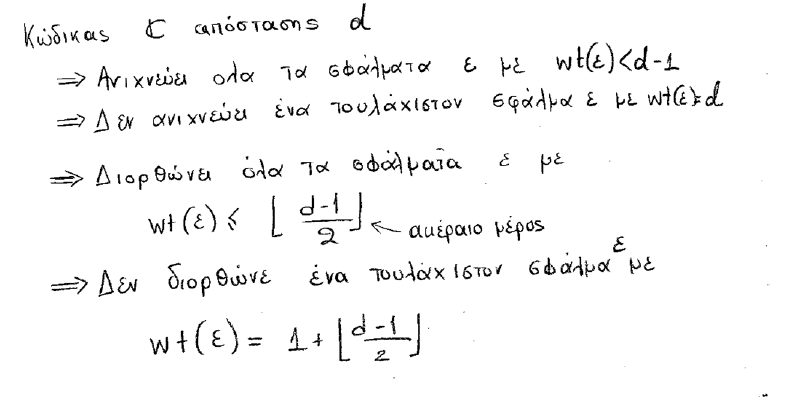 Κώδικας C απόστασης d
⇒ Ανιχνεύει ολα τα σφάλματα ε με wt(ε)<d-1
⇒ Δεν ανιχνεύει ένα τουλάχιστον σφάλμα ε με wt(ε)=d
⇒ Διορθώνει όλα τα σφάλματα ε με
wt(ε) ≤ ⌊ d-1 / 2 ⌋ ← ακέραιο μέρος
⇒ Δεν διορθώνε ένα τουλάχιστον σφάλμα ε με
wt(ε) = 1 + ⌊ d-1 / 2 ⌋